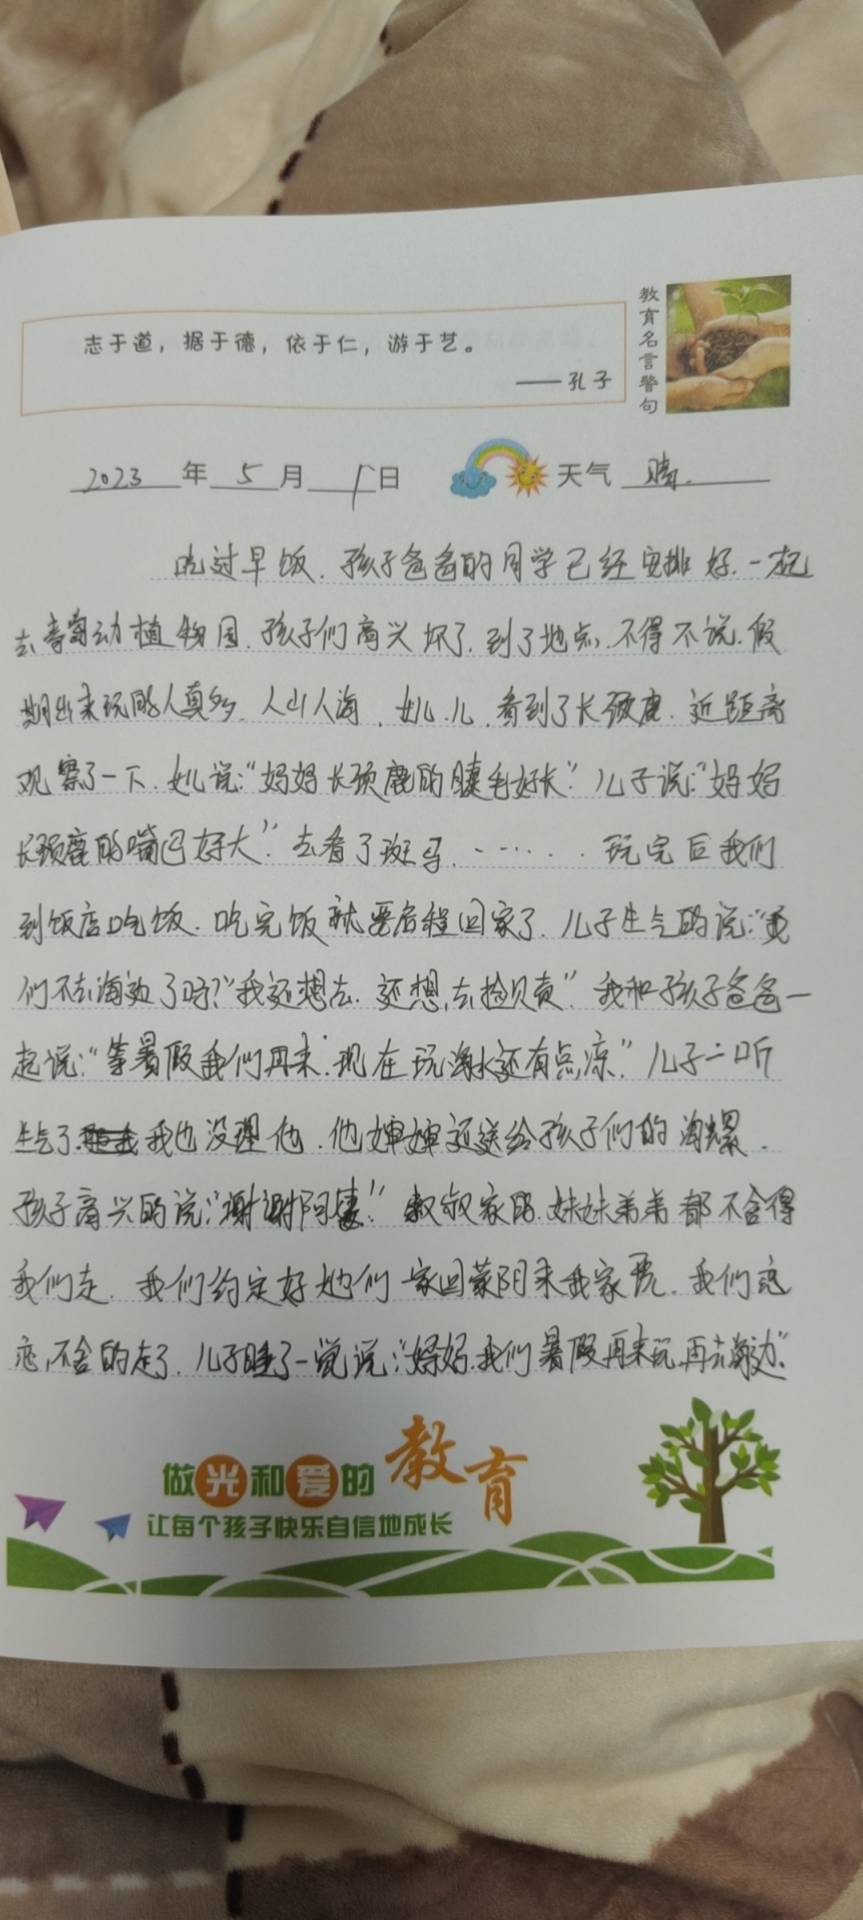 教育名言警句
志于道，据于德，依于仁，游于艺。
——孔子
2023年5月1日 天气 晴.
吃过早饭.孩子爸爸的同学已经安排好.一起
去青岛动植物园.孩子们高兴坏了.到了地点.不得不说.假
期出来玩的人真多.人山人海.女儿.儿.看到了长颈鹿.近距离
观察了一下.女儿说:"妈妈长颈鹿的睫毛好长".儿子说:"妈妈
长颈鹿的嘴巴好大".去看了斑马.……..玩完后我们
到饭店吃饭.吃完饭就要启程回家了.儿子生气的说:"我
们不去海边了吗?"我还想去.还想.去捡贝壳".我和孩子爸爸一
起说:"等暑假我们再来.现在玩海水还有点凉."儿子一听
生气了.我也没理他.他婶婶还送给孩子们的海螺.
孩子高兴的说:"谢谢阿姨!"叔叔家的.妹妹弟弟都不舍得
我们走.我们约定好他们一家回蒙阴来我家玩.我们恋
恋.不舍的走了.儿子睡了一觉说:"妈妈.我们暑假再来玩.再去海边".
做光和爱的教育
让每个孩子快乐自信地成长